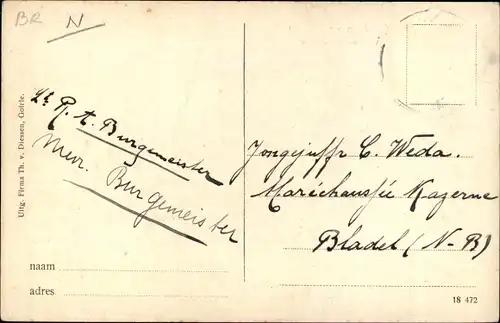 BR
N
Lt R. A. Burgemeister
Mevr. Burgemeister
Uitg. Firma Th. v. Diessen, Goirle.
naam
adres
Jongejuffr C. Weda.
Maréchaussée Kazerne
Bladel (N-B)
18 472